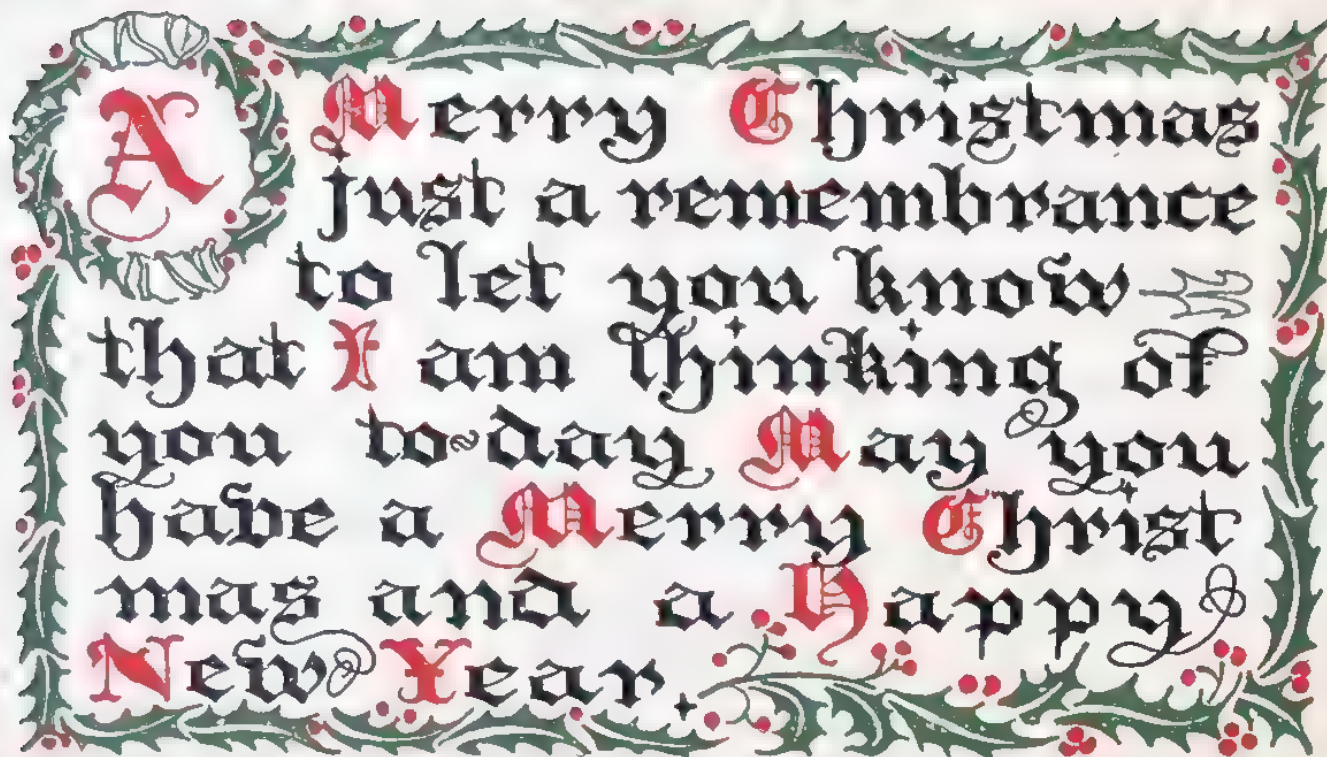 A Merry Christmas
just a remembrance
to let you know
that I am thinking of
you to-day May you
have a Merry Christ
mas and a Happy
New Year.